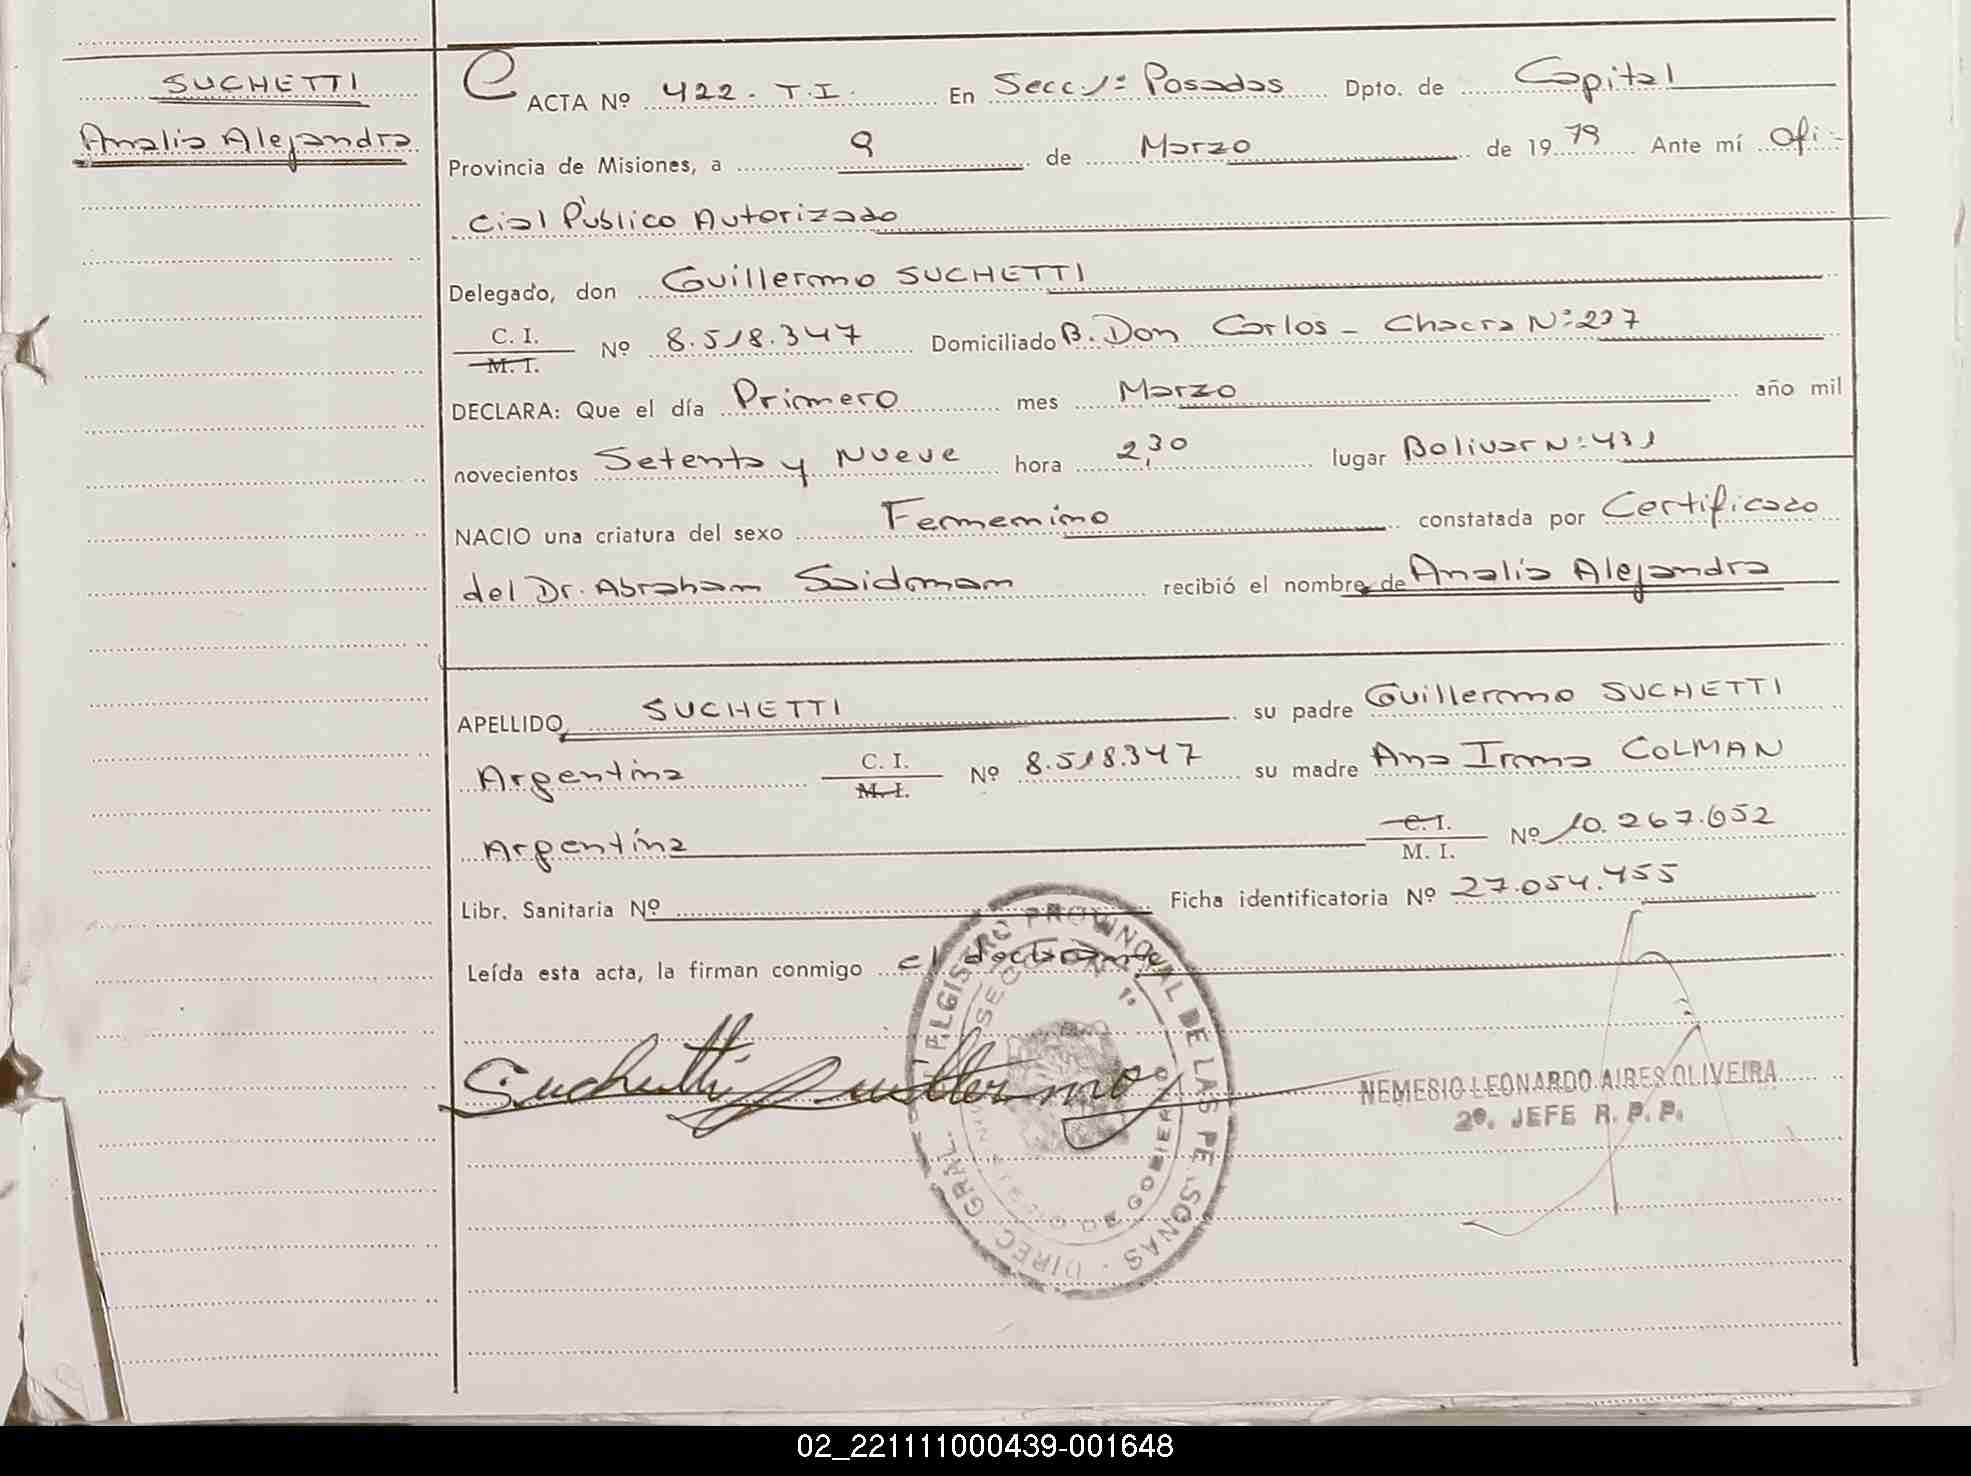 SUCHETTI
Analia Alejandra
ACTA Nº 422. T.I. En Secc 1º Posadas Dpto. de Capital
Provincia de Misiones, a 9 de Marzo de 1979 Ante mí Ofi-
cial Público Autorizado
Delegado, don Guillermo SUCHETTI
C. I.
M. I. Nº 8.518.347 Domiciliado B. Don Carlos - Chacra Nº 227
DECLARA: Que el día Primero mes Marzo año mil
novecientos Setenta y Nueve hora 2,30 lugar Bolivar Nº 431
NACIO una criatura del sexo Femenino constatada por Certificado
del Dr. Abraham Saidman recibió el nombre de Analia Alejandra
APELLIDO SUCHETTI su padre Guillermo SUCHETTI
Argentina C. I.
M. I. Nº 8.518.347 su madre Ana Irma COLMAN
Argentina C. I.
M. I. Nº 10.267.652
Libr. Sanitaria Nº Ficha identificatoria Nº 27.054.455
Leída esta acta, la firman conmigo el declarante
Suchetti Guillermo
DIREC. GRAL. REGISTRO PROVINCIAL DE LAS PERSONAS
SECCION 1º
DE GOBIERNO
NEMESIO LEONARDO AIRES OLIVEIRA
2º. JEFE R. P. P.
02_221111000439-001648